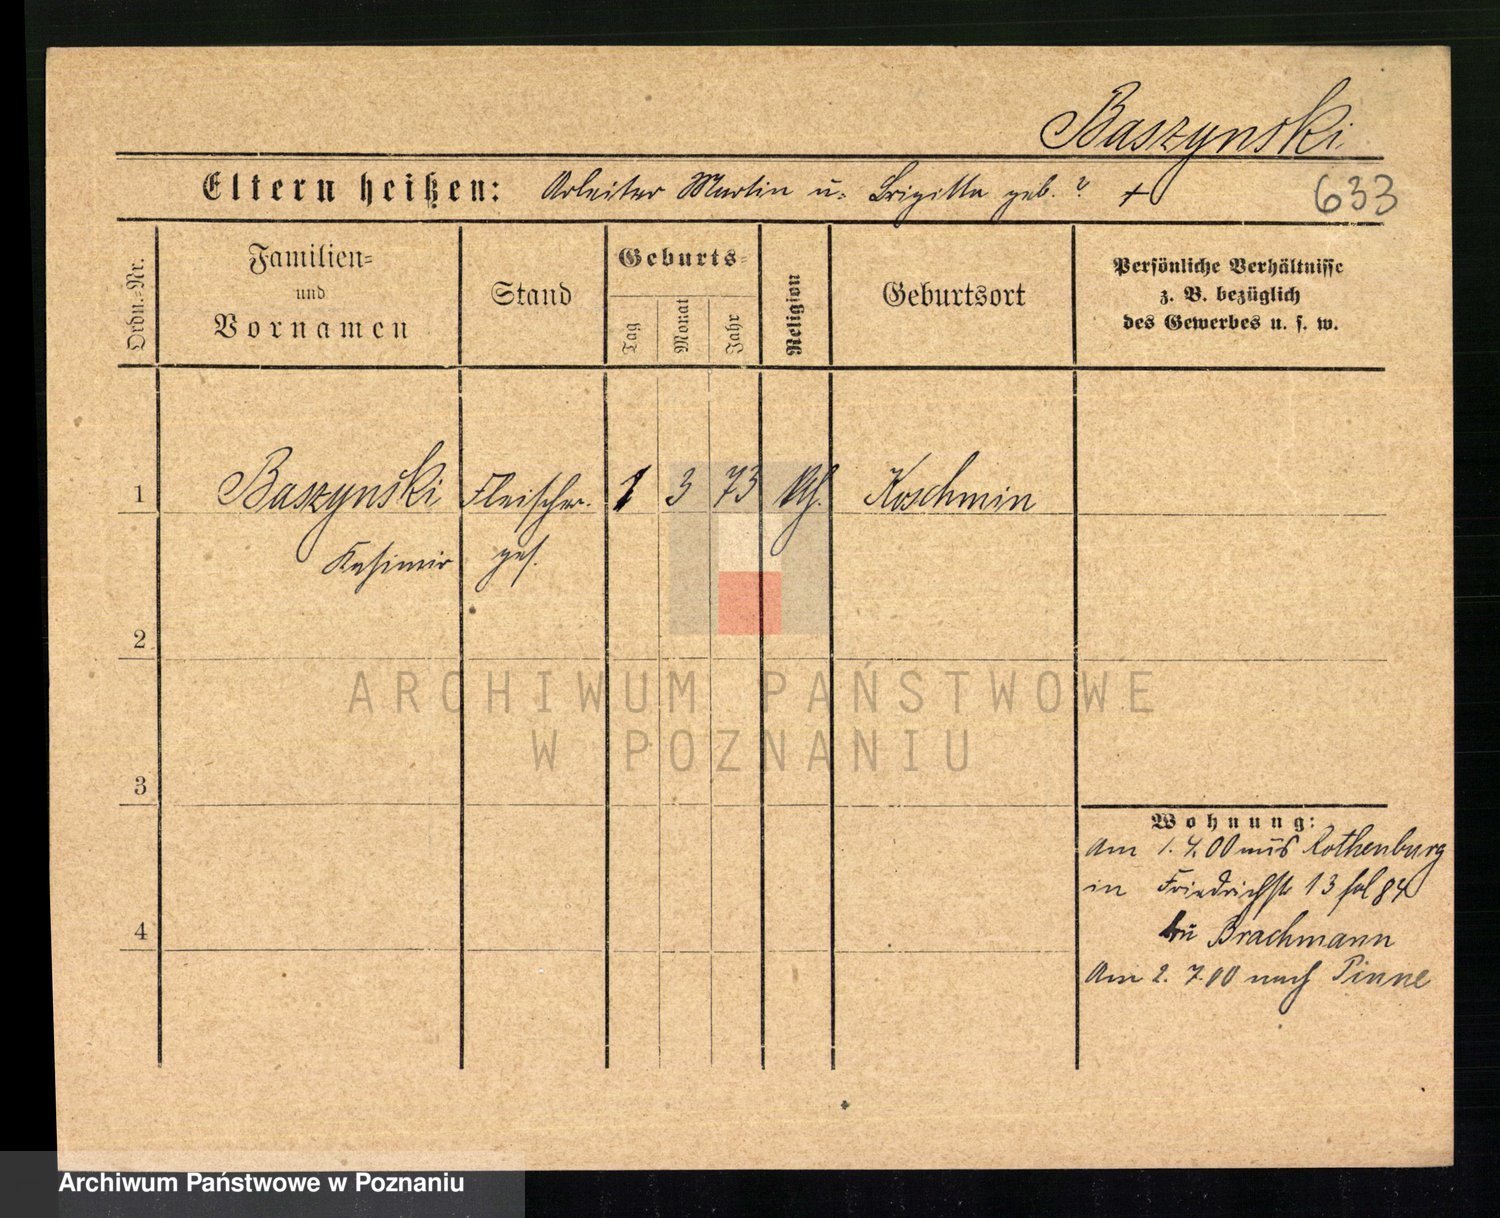 Baszynski
Eltern heißen: Arbeiter Martin u. Brigitta geb. ? +
633
Ordn.-Nr.
Familien-
und
Vornamen
Stand
Geburts-
Tag
Monat
Jahr
Religion
Geburtsort
Persönliche Verhältnisse
z. B. bezüglich
des Gewerbes u. s. w.
1 Baszynski Fleischer- 1 3 73 Koschmin
Kasimir ges.
2
3
4
Wohnung:
Am 1.4.00 aus Rothenburg
in Friedrichstr 13 fol 84
bei Brachmann
Am 2.7.00 nach Pinne
ARCHIWUM PAŃSTWOWE
W POZNANIU
Archiwum Państwowe w Poznaniu